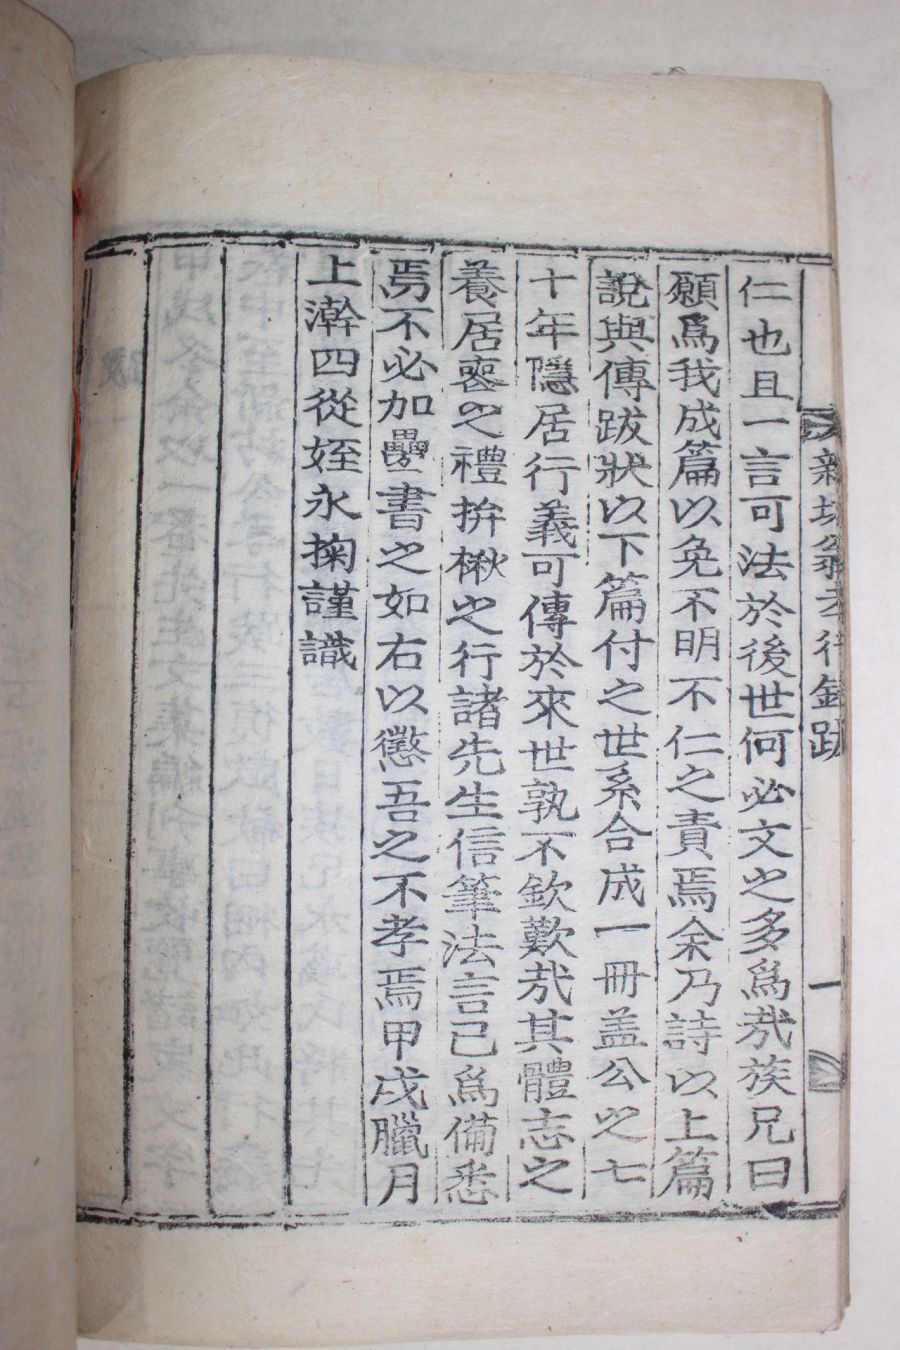 仁也且一言可法於後世何必文之多爲㢤族兄曰
願爲我成篇以免不明不仁之責焉余乃詩以上篇
說與傳跋狀以下篇付之世系合成一冊盖公之七
十年隱居行義可傳於來世孰不欽歎㢤其體志之
養居喪之禮拚楸之行諸先生信筆法言已爲備悉
焉不必加疊書之如右以懲吾之不孝焉甲戌臘月
上澣四從姪永掬謹識
行錄跋
一